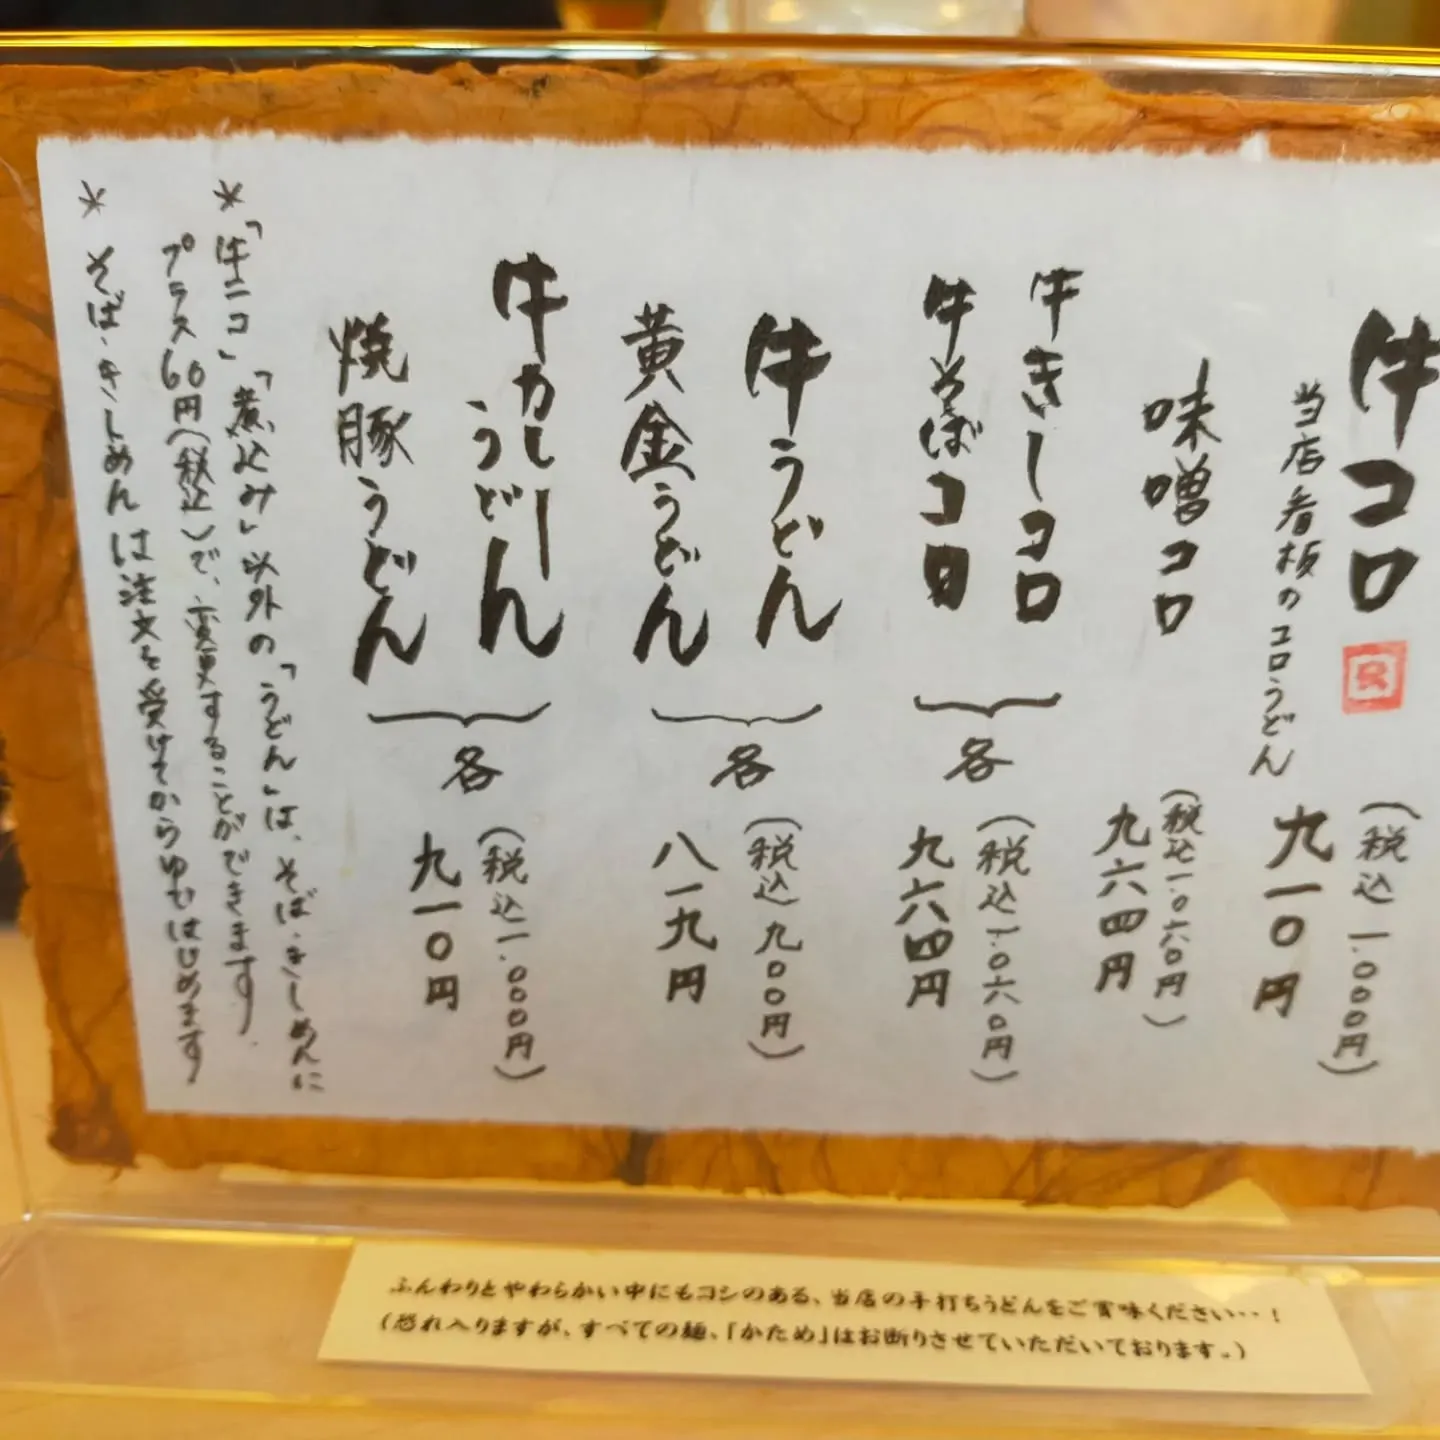 牛コロ
当店看板のコロうどん
(税込一、〇〇〇円)
九一〇円
味噌コロ
(税込一、〇六〇円)
九六四円
牛きしーコロ
牛そばコロ
各
(税込一、〇六〇円)
九六四円
牛うどん
黄金うどん
各
(税込九〇〇円)
八一九円
牛カレーうどん
焼豚うどん
各
(税込一、〇〇〇円)
九一〇円
*「牛ニコ」「煮込み」以外の「うどん」は、そば・きしめんに
プラス60円(税込)で、変更することができます。
* そば・きしめんは注文を受けてからゆではじめます
ふんわりとやわらかい中にもコシのある、当店の手打ちうどんをご賞味ください‥!
(恐れ入りますが、すべての麺、「かため」はお断りさせていただいております。)